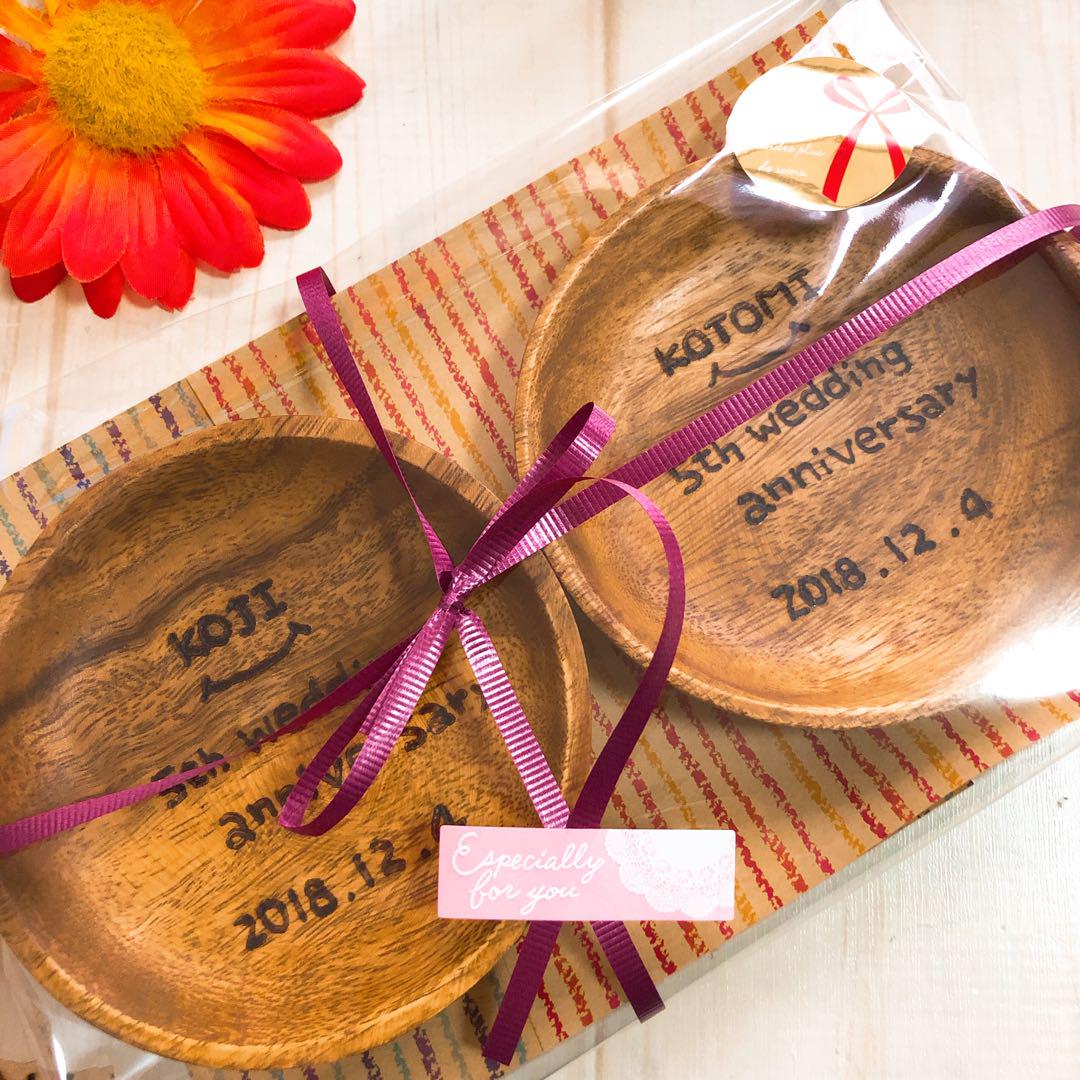 KOTOMI
5th wedding
anniversary
2018.12.4
KOJI
5th
anniversary
2018.12.4
Especially
for you